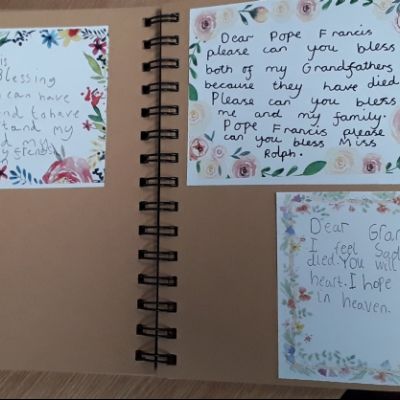 Blessing
can have
end to have
stand my
d my
Dear Pope Francis
please can you bless
both of my Grandfathers
because they have died
Please can you bless
me and my family.
Pope Francis please
can you bless Miss
Rolph.
Dear Gran
I feel Sad
died. You will
heart. I hope
in heaven.